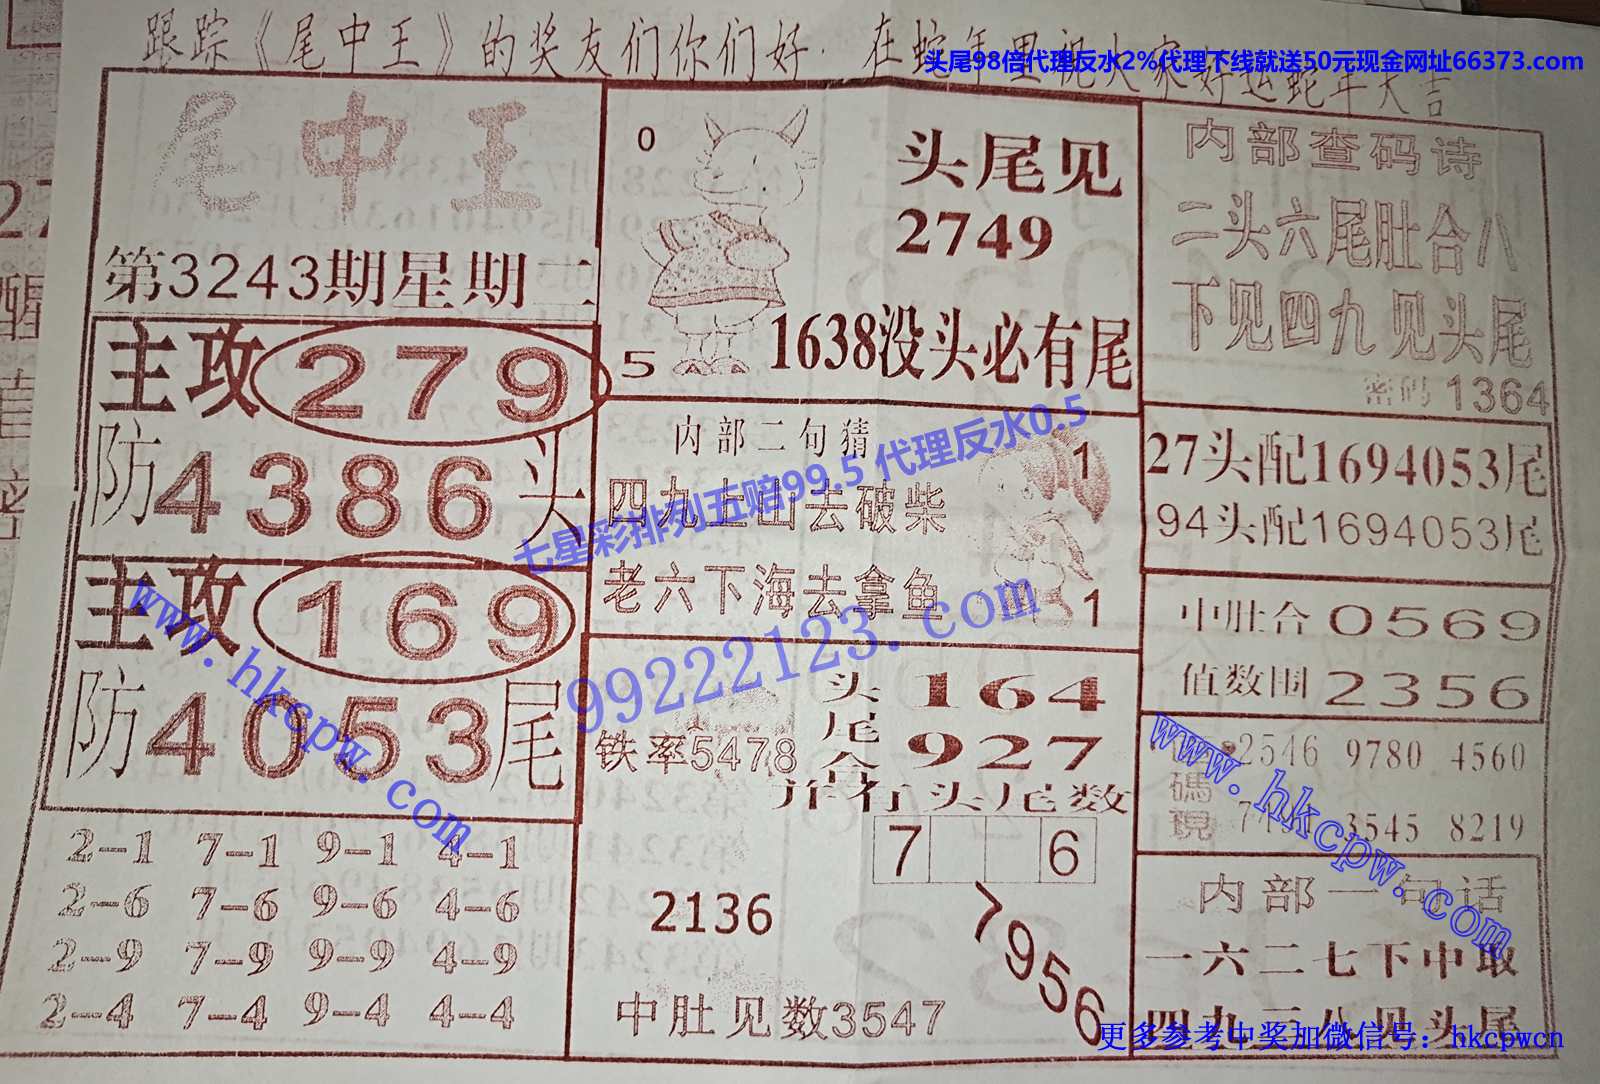 跟踪《尾中王》的奖友们你们好. 在蛇年里祝大家好运蛇年大吉
头尾98倍代理反水2%代理下线就送50元现金网址66373.com
尾中王
第3243期星期二
主攻279
防4386头
主攻169
防4053尾
2-1 7-1 9-1 4-1
2-6 7-6 9-6 4-6
2-9 7-9 9-9 4-9
2-4 7-4 9-4 4-4
0
5
头尾见
2749
1638没头必有尾
内部二句猜
四九上山去破柴
老六下海去拿鱼
1
1
七星彩排列五赔99.5 代理反水0.5
99222123.com
www.hkcpw.com
铁率5478
头尾合
164
927
并有头尾数
7 6
2136
79566
中肚见数3547
内部查码诗
二头六尾肚合八
下见四九见头尾
密码1364
27头配1694053尾
94头配1694053尾
中肚合0569
值数围2356
碼現
2546 9780 4560
3545 8219
www.hkcpw.com
内部一句话
一六二七下中取
四九三八见头尾
更多参考中奖加微信号：hkcpwcn